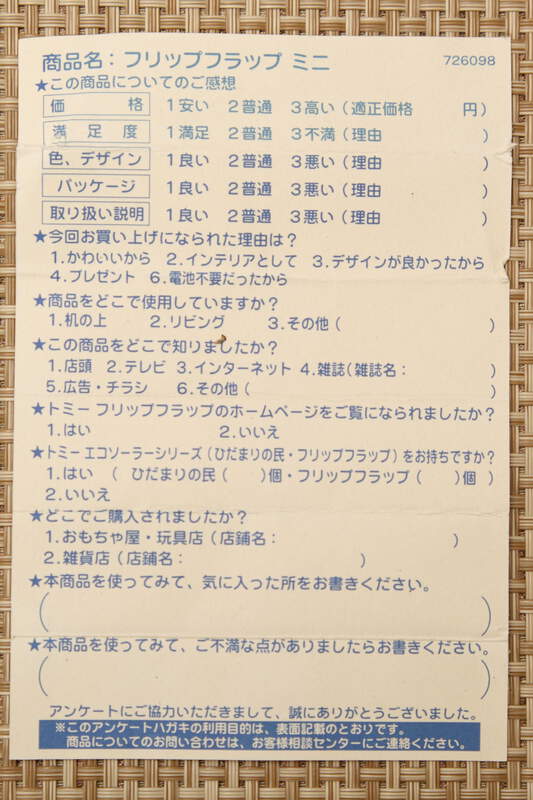 商品名：フリップフラップ ミニ 726098
★この商品についてのご感想
価格 1安い 2普通 3高い（適正価格 円）
満足度 1満足 2普通 3不満（理由 ）
色、デザイン 1良い 2普通 3悪い（理由 ）
パッケージ 1良い 2普通 3悪い（理由 ）
取り扱い説明 1良い 2普通 3悪い（理由 ）
★今回お買い上げになられた理由は？
1.かわいいから 2.インテリアとして 3.デザインが良かったから
4.プレゼント 6.電池不要だったから
★商品をどこで使用していますか？
1.机の上 2.リビング 3.その他（ ）
★この商品をどこで知りましたか？
1.店頭 2.テレビ 3.インターネット 4.雑誌（雑誌名： ）
5.広告・チラシ 6.その他（ ）
★トミー フリップフラップのホームページをご覧になられましたか？
1.はい 2.いいえ
★トミー エコソーラーシリーズ（ひだまりの民・フリップフラップ）をお持ちですか？
1.はい （ ひだまりの民（ ）個・フリップフラップ（ ）個 ）
2.いいえ
★どこでご購入されましたか？
1.おもちゃ屋・玩具店（店舗名： ）
2.雑貨店（店舗名： ）
★本商品を使ってみて、気に入った所をお書きください。
（ ）
★本商品を使ってみて、ご不満な点がありましたらお書きください。
（ ）
アンケートにご協力いただきまして、誠にありがとうございました。
※このアンケートハガキの利用目的は、表面記載のとおりです。
商品についてのお問い合わせは、お客様相談センターにご連絡ください。